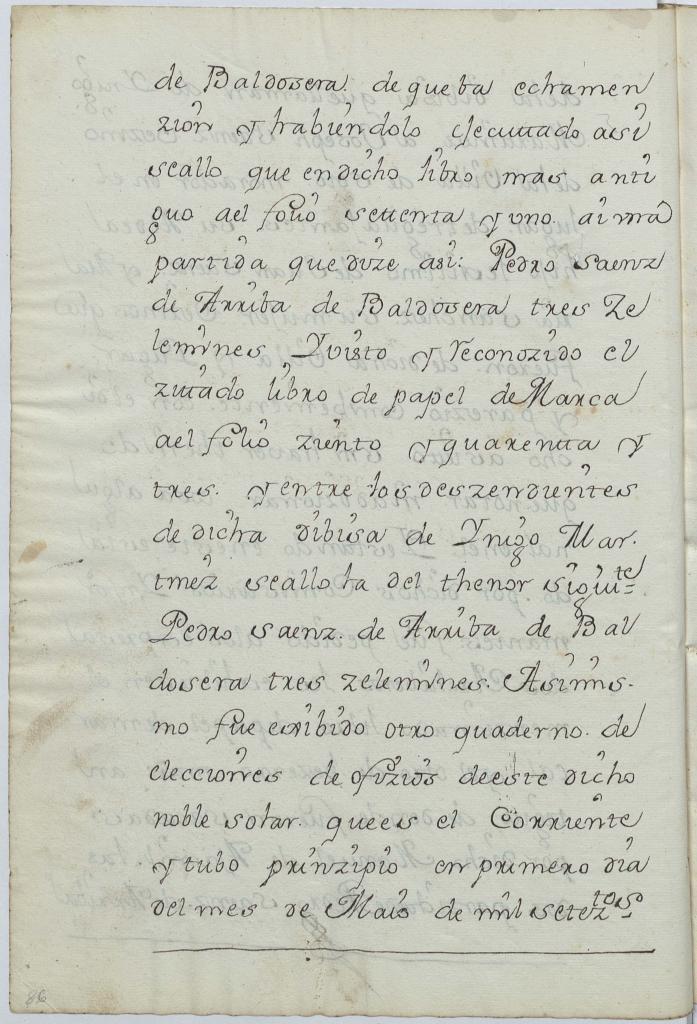 de Baldosera. de que ba echa men
zion y habiendolo ejecuttado asi
se allo que en dicho libro mas anti
guo ael folio settenta y uno. ai una
partida que dize asi: Pedro Saenz
de Arriba de Baldosera tres Ze
lemines Y visto y reconozido el
zittado libro de papel de Marca
ael folio ziento y quarentta y
tres. y entre los deszendientes
de dicha dibisa de Ynigo Mar.
tinez se allo ha del thenor siguite=
Pedro Saenz. de Arriba de Bal
dosera tres zelemines. Asimis.
mo fue exibido otro quaderno. de
elecciones de ofizios de este dicho
noble solar. que es el Corriente
y tubo prinzipio en primero dia
del mes de Maio de mil seteztos
86